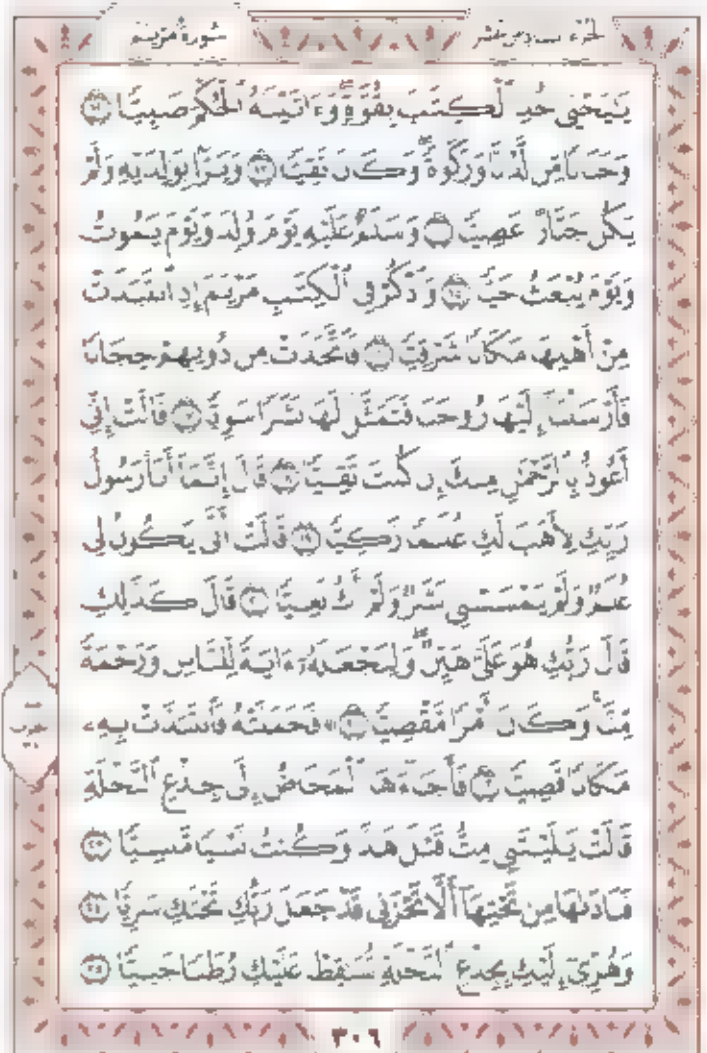 سورة مريم
الجزء السادس عشر
يَٰيَحْيَىٰ خُذِ ٱلْكِتَٰبَ بِقُوَّةٍ ۖ وَءَاتَيْنَٰهُ ٱلْحُكْمَ صَبِيًّا ١٢
وَحَنَانًا مِّن لَّدُنَّا وَزَكَوٰةً ۖ وَكَانَ تَقِيًّا ١٣ وَبَرًّۢا بِوَٰلِدَيْهِ وَلَمْ
يَكُن جَبَّارًا عَصِيًّا ١٤ وَسَلَٰمٌ عَلَيْهِ يَوْمَ وُلِدَ وَيَوْمَ يَمُوتُ
وَيَوْمَ يُبْعَثُ حَيًّا ١٥ وَٱذْكُرْ فِى ٱلْكِتَٰبِ مَرْيَمَ إِذِ ٱنتَبَذَتْ
مِنْ أَهْلِهَا مَكَانًا شَرْقِيًّا ١٦ فَٱتَّخَذَتْ مِن دُونِهِمْ حِجَابًا
فَأَرْسَلْنَآ إِلَيْهَا رُوحَنَا فَتَمَثَّلَ لَهَا بَشَرًا سَوِيًّا ١٧ قَالَتْ إِنِّىٓ
أَعُوذُ بِٱلرَّحْمَٰنِ مِنكَ إِن كُنتَ تَقِيًّا ١٨ قَالَ إِنَّمَآ أَنَا۠ رَسُولُ
رَبِّكِ لِأَهَبَ لَكِ غُلَٰمًا زَكِيًّا ١٩ قَالَتْ أَنَّىٰ يَكُونُ لِى
غُلَٰمٌ وَلَمْ يَمْسَسْنِى بَشَرٌ وَلَمْ أَكُ بَغِيًّا ٢٠ قَالَ كَذَٰلِكِ
قَالَ رَبُّكِ هُوَ عَلَىَّ هَيِّنٌ ۖ وَلِنَجْعَلَهُۥٓ ءَايَةً لِّلنَّاسِ وَرَحْمَةً
مِّنَّا ۚ وَكَانَ أَمْرًا مَّقْضِيًّا ٢١ ۞ فَحَمَلَتْهُ فَٱنتَبَذَتْ بِهِۦ
مَكَانًا قَصِيًّا ٢٢ فَأَجَآءَهَا ٱلْمَخَاضُ إِلَىٰ جِذْعِ ٱلنَّخْلَةِ
قَالَتْ يَٰلَيْتَنِى مِتُّ قَبْلَ هَٰذَا وَكُنتُ نَسْيًا مَّنسِيًّا ٢٣
فَنَادَىٰهَا مِن تَحْتِهَآ أَلَّا تَحْزَنِى قَدْ جَعَلَ رَبُّكِ تَحْتَكِ سَرِيًّا ٢٤
وَهُزِّىٓ إِلَيْكِ بِجِذْعِ ٱلنَّخْلَةِ تُسَٰقِطْ عَلَيْكِ رُطَبًا جَنِيًّا ٢٥
٣٠٦